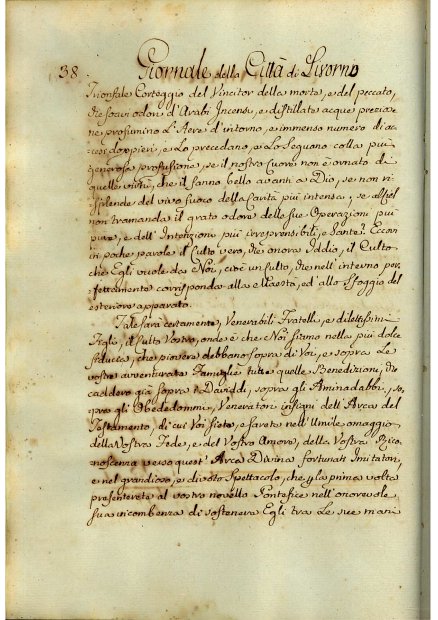 38. Giornale della Città di Livorno
Trionfale Corteggio del Vincitor della morte, e del peccato,
che soavi odori d'Arabi Incensi, e distillate acque prezio-
ne profumino l'Aere d'intorno, e immenso numero di ac-
cesi doppieri, e Lo precedano, e Lo Seguano colla più
generosa profusione, se il nostro Cuore non è ornato di
quelle virtù, che il fanno bello avanti a Dio, se non ri-
splende del vivo fuoco della Carità più intensa, se al Ciel
non tramanda il grato odore delle sue Operazioni più
pure, e dell'Intenzioni più irreprensibili, e Sante? Eccovi
in poche parole il Culto vero, che onora Iddio, il Culto
che Egli vuole da Noi, cioè un Culto, che nell'interno per-
fettamente corrisponda alla Maestà, ed allo sfoggio del
esteriore apparato.
Tale sarà certamente, Venerabili Fratelli, e dilettissimi
Figli, il Culto Vostro, onde è che Noi siamo nella più dolce
fiducia, che piovere debbano sopra di Voi, e sopra Le
vostre avventurate Famiglie tutte quelle Benedizioni, che
caddero già sopra i Daviddi, sopra gli Aminadabbi, so-
pra gli Obededommi, Veneratori insigni dell'Arca del
Testamento, di cui Voi siete, e sarete nell'Umile omaggio
della Vostra Fede, e del Vostro Amore, della Vostra Rico-
noscenza verso quest'Arca Divina fortunati Imitatori,
e nel grandioso, e divoto Spettacolo, che p la prima volta
presenterete al vostro novello Pontefice nell'onorevole
sua incombenza di sostenere Egli tra Le sue mani